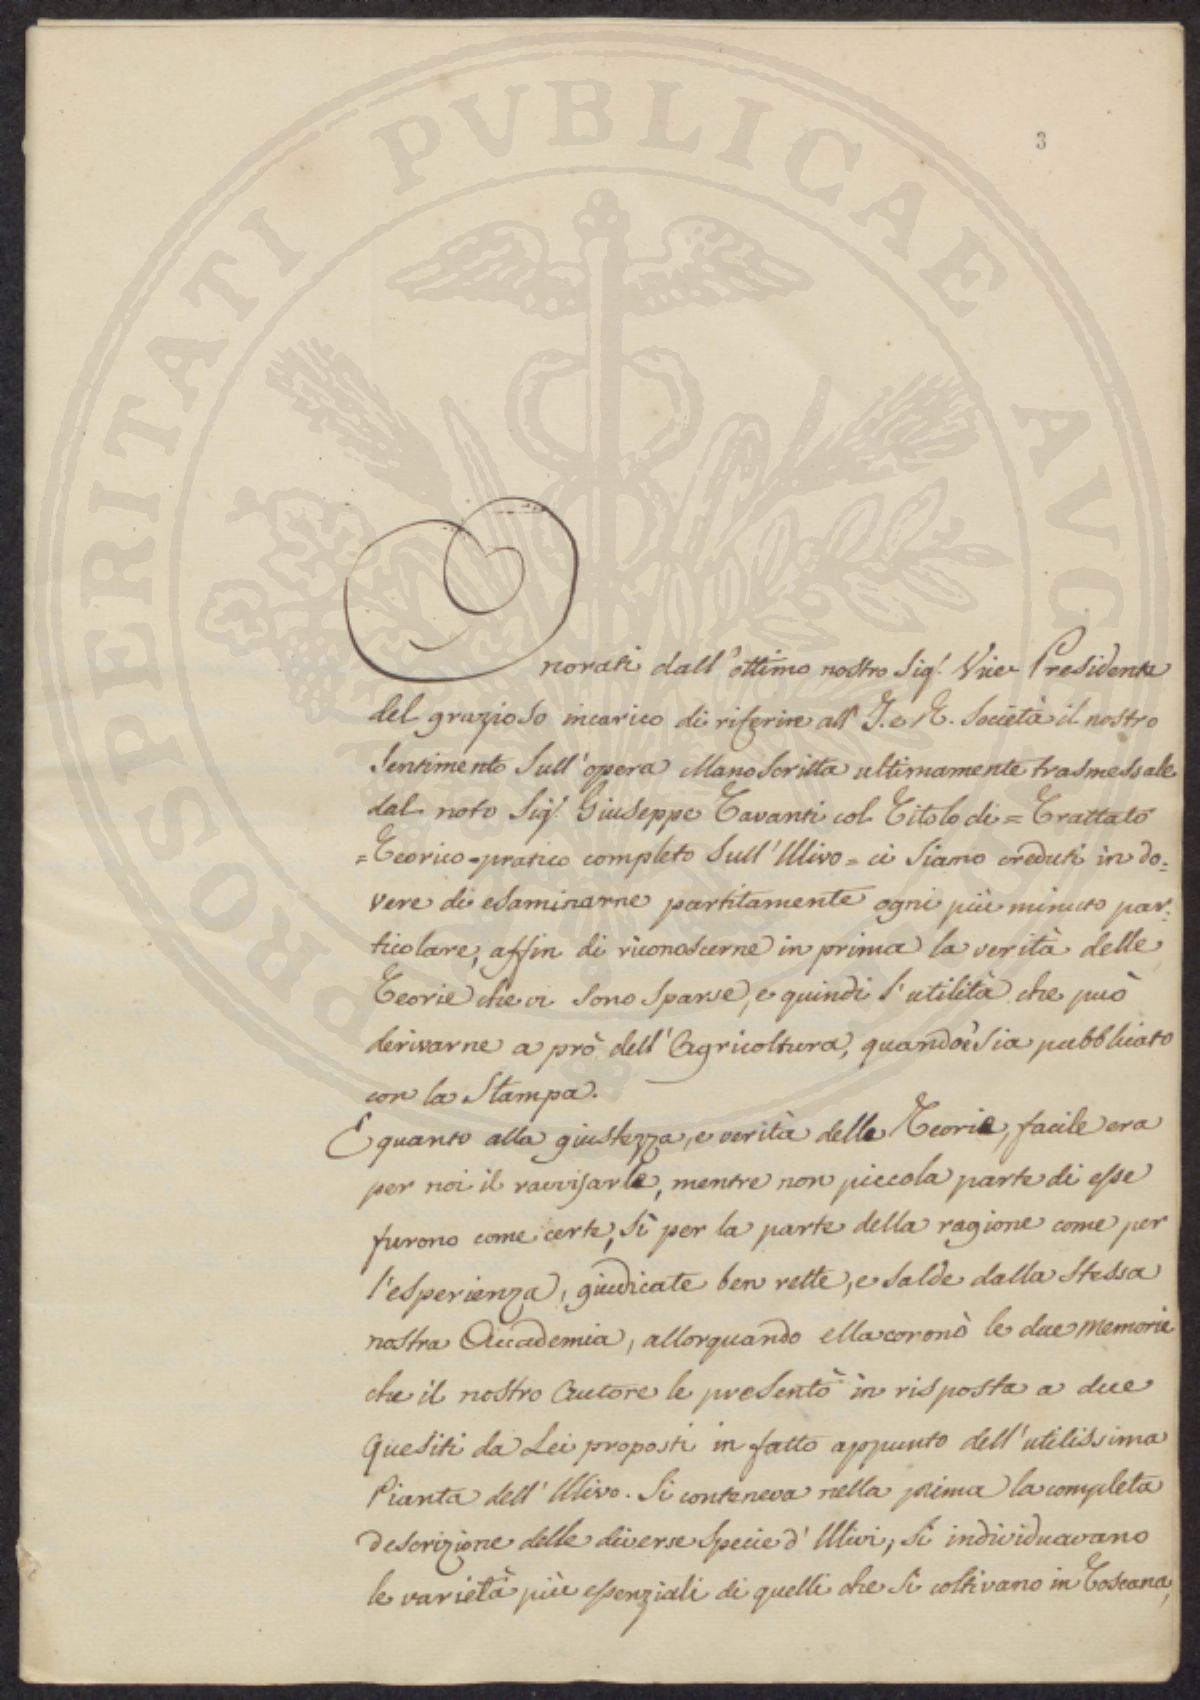 3
Onorati dall'ottimo nostro Sig.r Vice Presidente
del grazioso incarico di riferire all'I. e R. Società il nostro
Sentimento Sull'opera Manoscritta ultimamente trasmessale
dal noto Sig.r Giuseppe Tavanti col Titolo di = Trattato
= Teorico-pratico completo Sull'Ulivo = ci Siamo creduti in do=
vere di esaminarne partitamente ogni più minuto par=
ticolare, affin di riconoscerne in prima la verità delle
Teorie che vi sono sparse, e quindi l'utilità che può
derivarne a prò dell'Agricoltura, quando e' Sia pubblicato
con la Stampa.
E quanto alla giustezza, e verità delle Teorie, facile era
per noi il ravvisarle, mentre non piccola parte di esse
furono come certe, Sì per la parte della ragione come per
l'esperienza, giudicate ben rette, e salde dalla Stessa
nostra Accademia, allorquando ella coronò le due Memorie
che il nostro Autore le presentò in risposta a due
Quesiti da Lei proposti in fatto appunto dell'utilissima
Pianta dell'Ulivo. Si conteneva nella prima la completa
descrizione delle diverse Specie d'Ulivi, Si individuavano
le varietà più essenziali di quelli che Si coltivano in Toscana,
PROSPERITATI PVBLICAE AVG